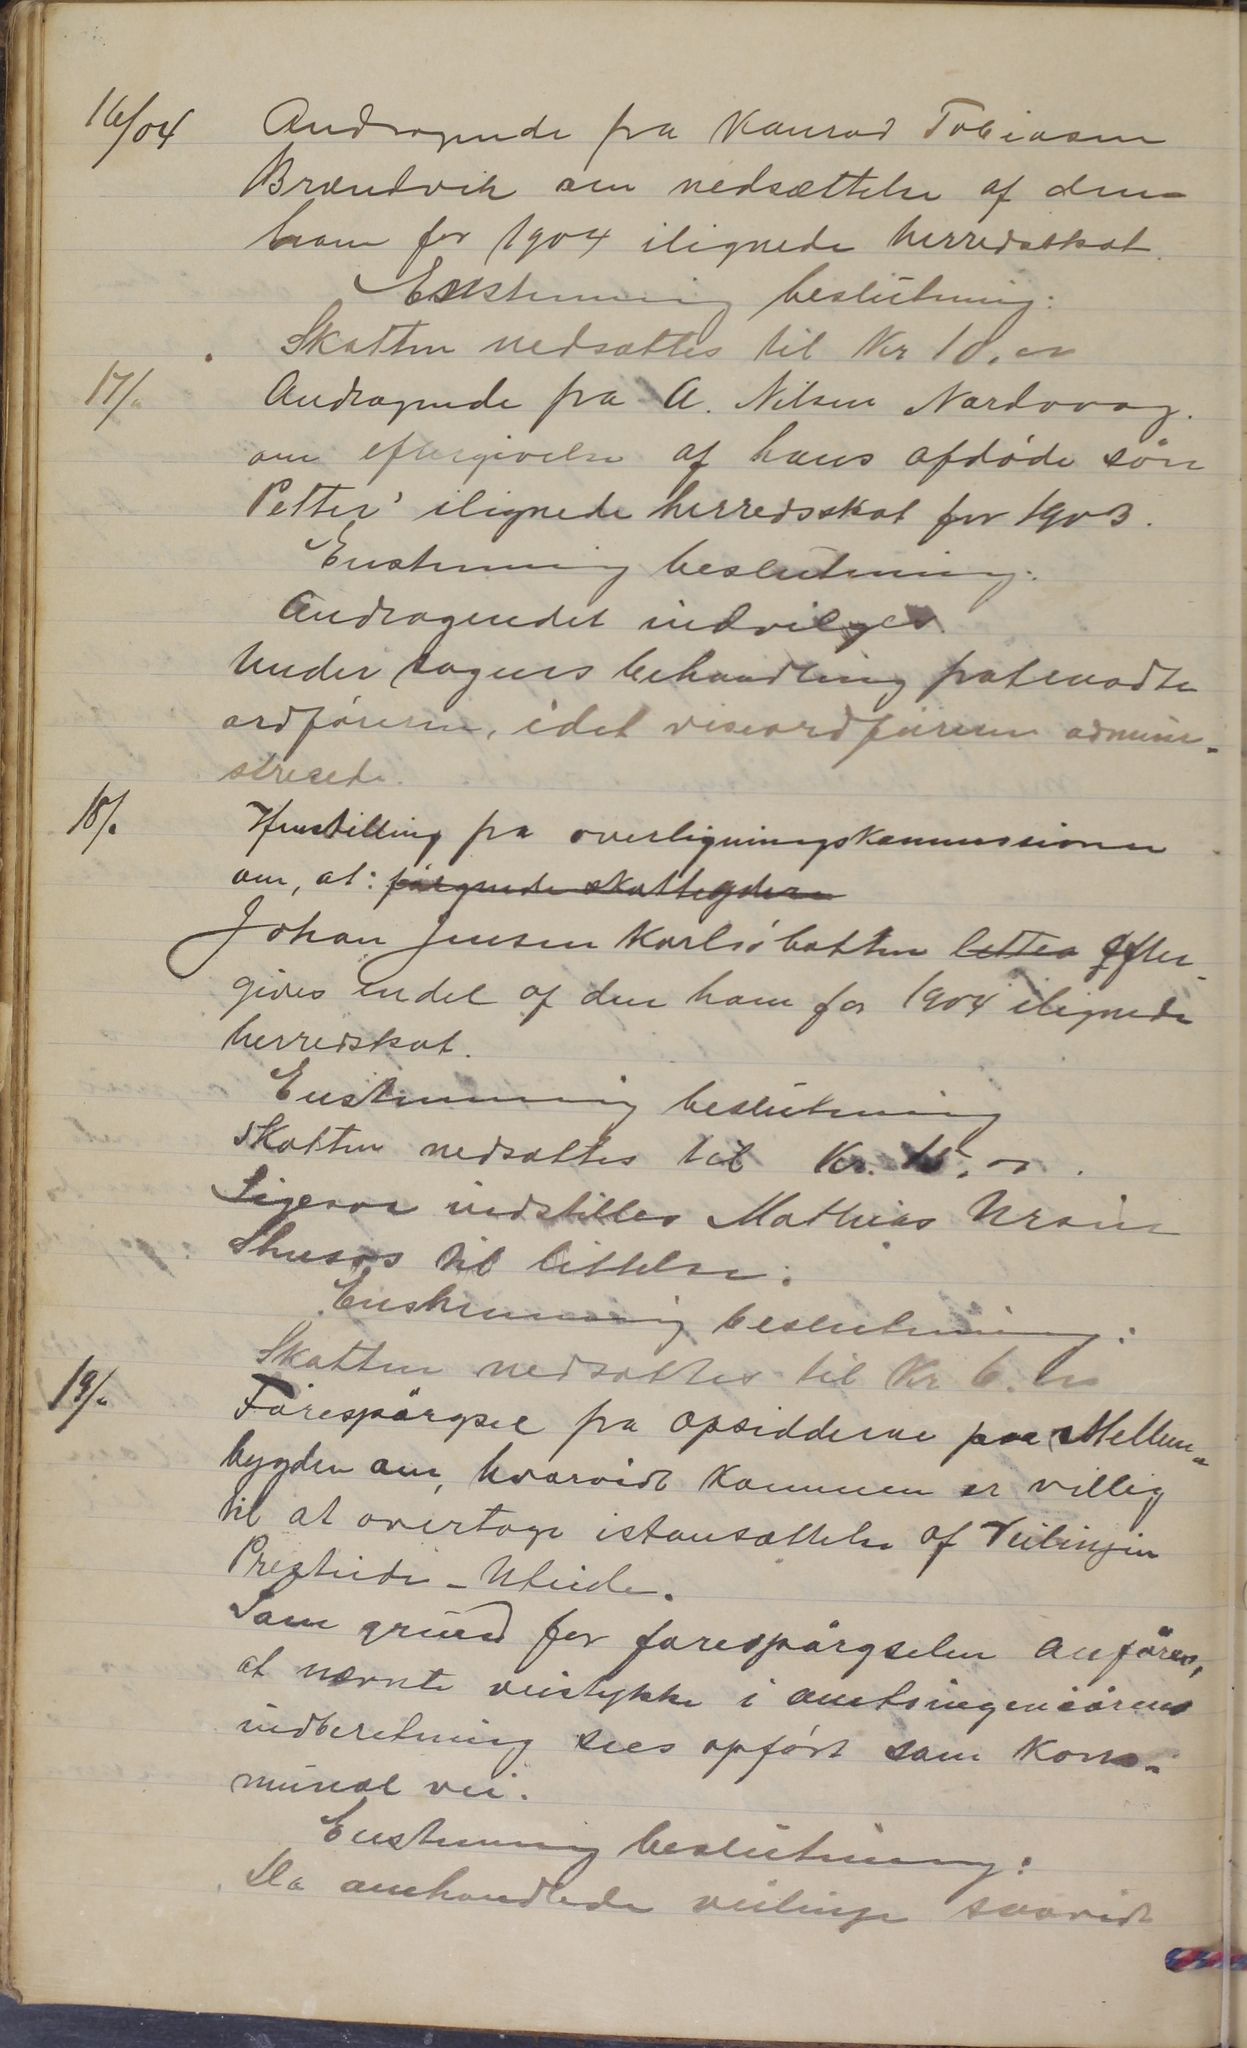 16/04 Andragende fra Konrad Tobiasen
Brændvik om nedsættelse af den
ham for 1904 ilignede herredsskat.
Enstemmig beslutning:
Skatten nedsættes til Kr 10,00
17/" Andragende fra A. Nilsen Nordvaag.
om eftergivelse af hans afdøde søn
Petter' ilignede herredsskat for 1903.
Enstemmig beslutning:
Andragendet indvilges.
Under sagens behandling fratraadte
ordføreren, idet viseordføreren admini-
strerede.
18/" Henstilling fra overligningskommissionen
om, at: følgende skatteydere
Johan Jensen Karlsøbotten lettes efter-
gives endel af den ham for 1904 ilignede
herredskat.
Enstemmig beslutning
Skatten nedsættes til Kr. 15,00.
Ligesaa indstilles Mathias Ursin
til lettelse.
Enstemmig beslutning:
Skatten nedsættes til Kr 6.00
19/" Forespørgsel fra opsidderne paa Mellem-
bygden om, hvorvidt kommunen er villig
til at overtage istandsættelse af veilinjen
Presteide - Uteide.
Som grund for forespørgselen anføres,
at nævnte veistykke i amtsingeniørens
indberetning sees opført som kom-
munal vei.
Enstemmig beslutning:
Da omhandlede veilinje saavidt